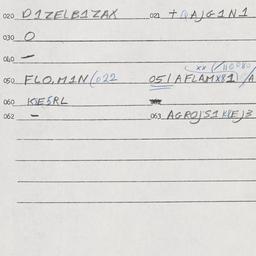 020 D1ZELB1ZAX 021 + QAJG1N1
030 O
040 —
xx (/110080
050 FLO,M1N (022 051 AFLAMX81)/A
060 KIE5RL
062 – 063 AGROJS1 KIEJ3